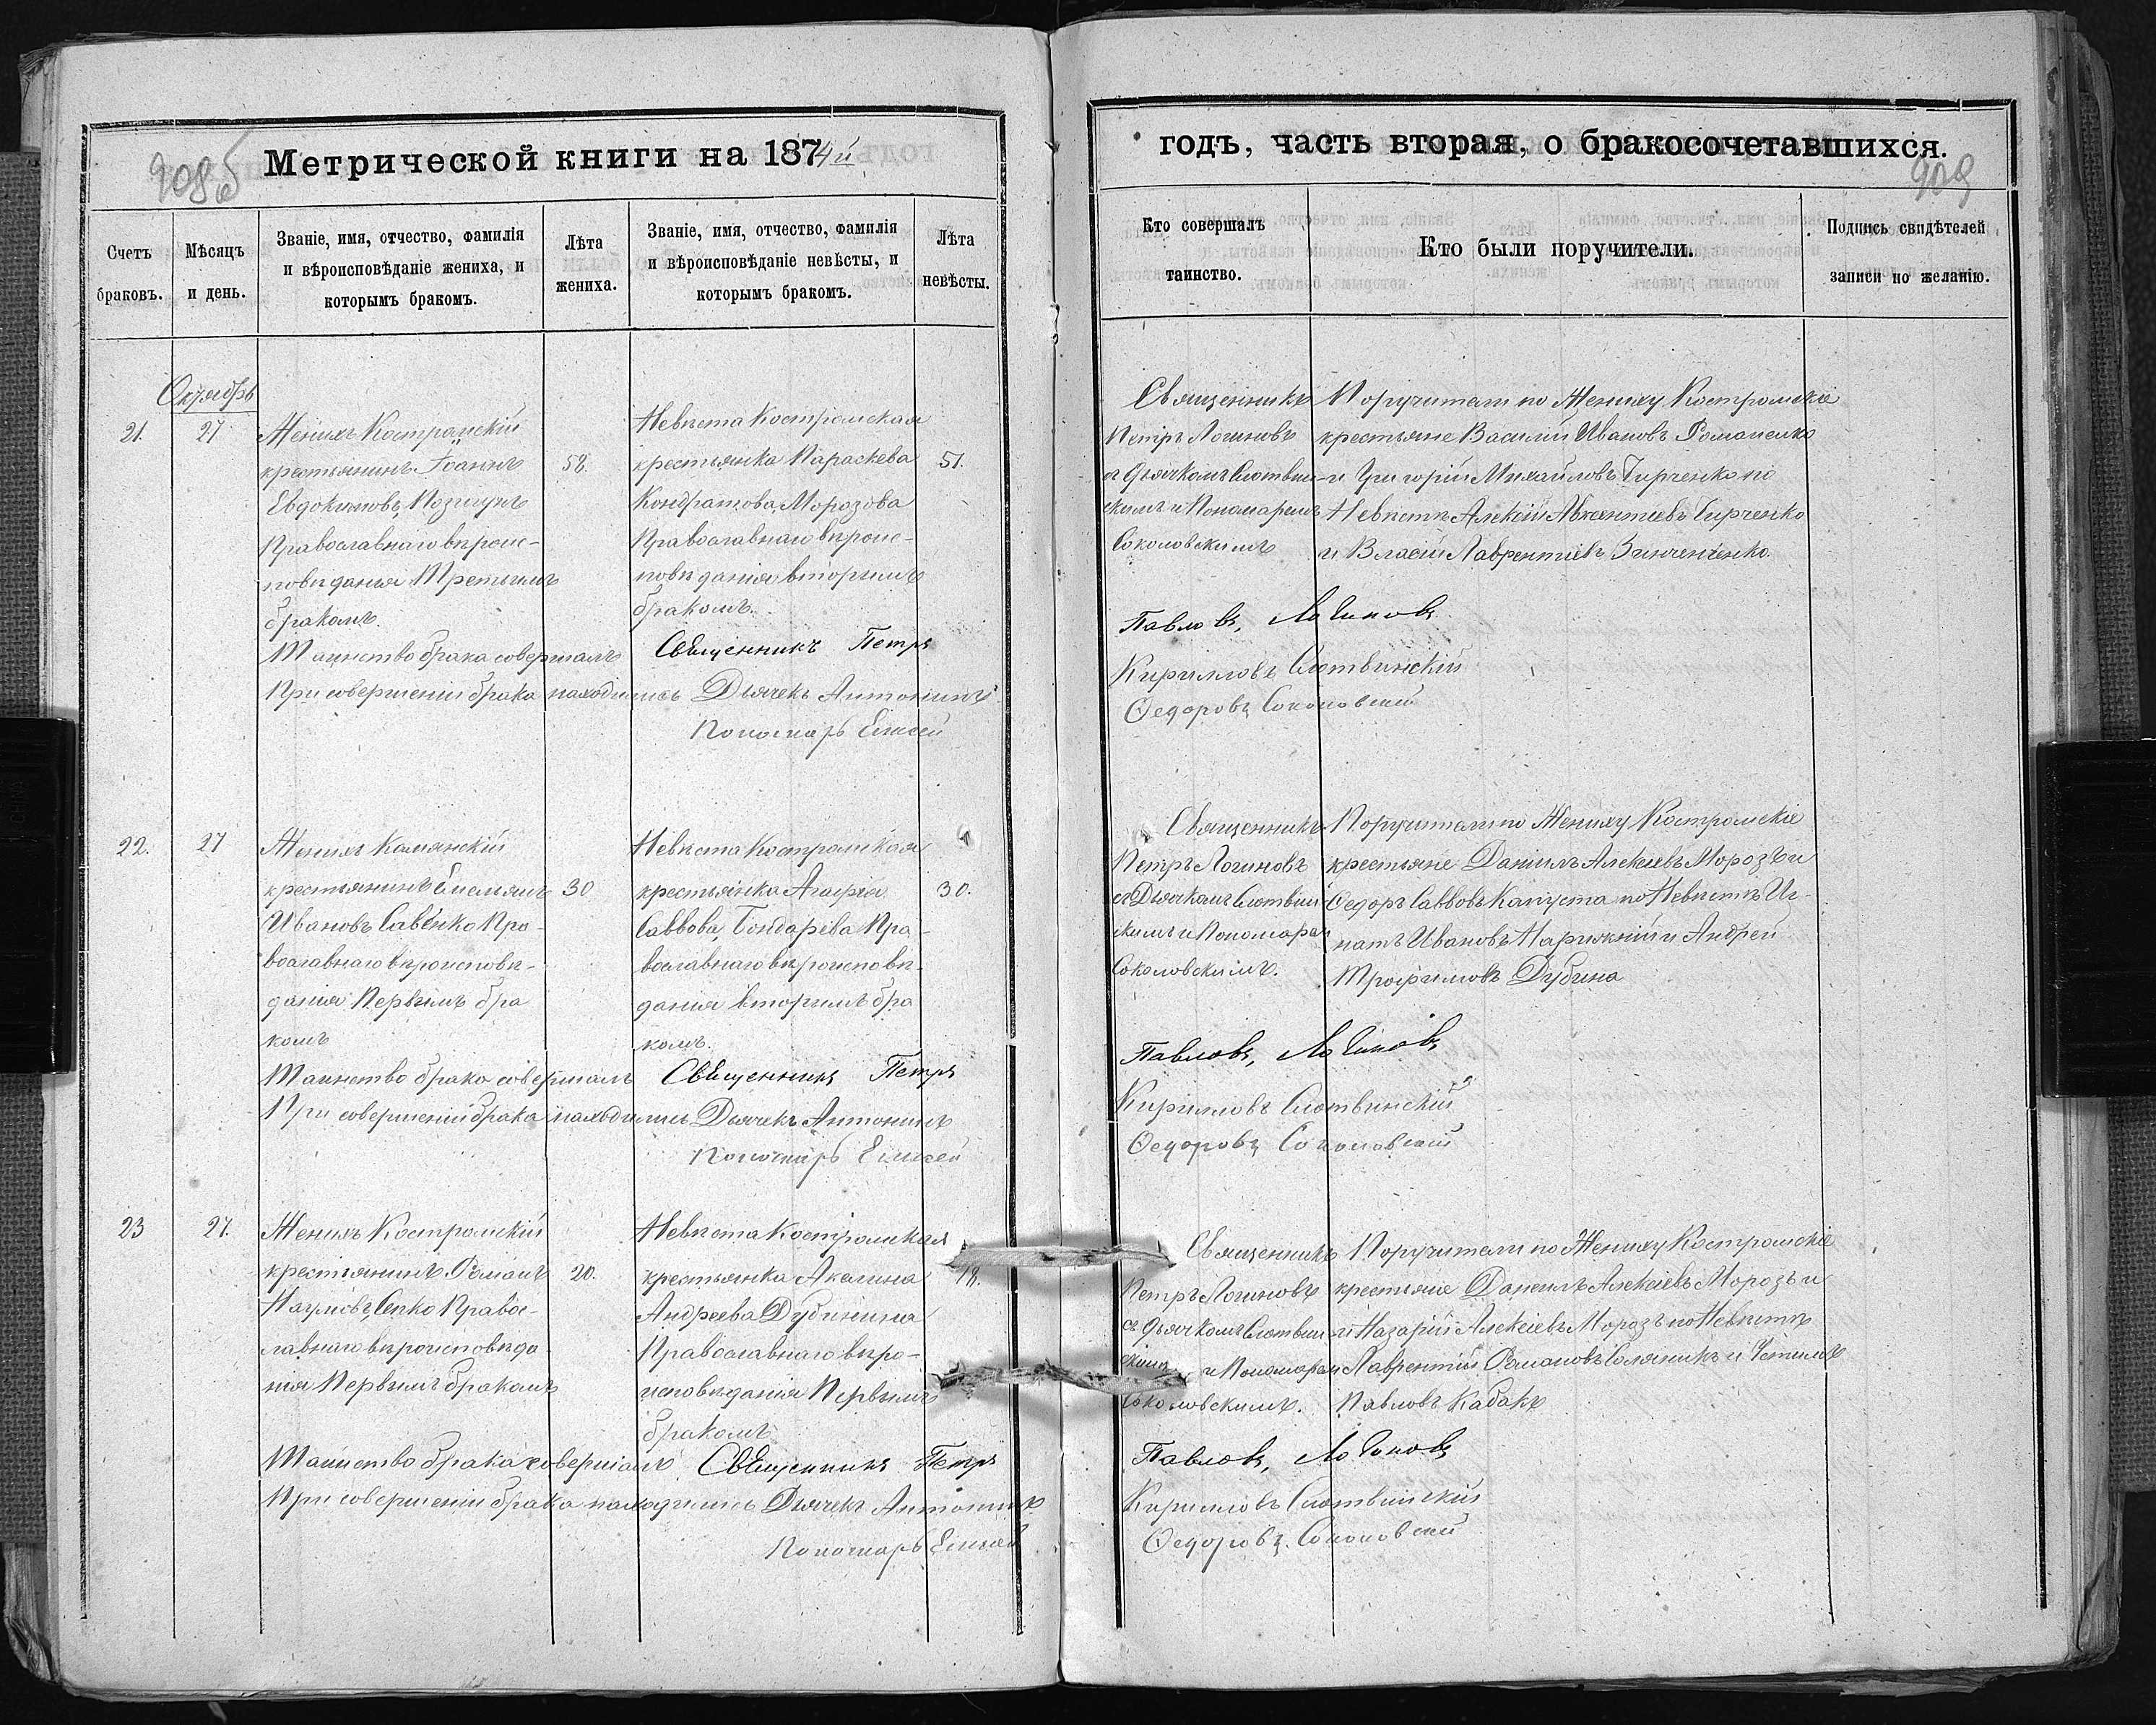 908б
Метрической книги на 1874й
Счетъ браковъ.
Мѣсяцъ и день.
Званіе, имя, отчество, фамилія и вѣроисповѣданіе жениха, и которымъ бракомъ.
Лѣта жениха.
Званіе, имя, отчество, фамилія и вѣроисповѣданіе невѣсты, и которымъ бракомъ.
Лѣта невѣсты.
Октябрь
21.
27
Женихъ Костромскій
крестьянинъ Іоаннъ
Евдокимовъ Позигунъ
Православнаго вѣроис-
повѣданія Третьимъ
бракомъ.
58.
Невѣста Костромская
крестьянка Параскева
Кондратова Морозова
Православнаго вѣроис-
повѣданія вторымъ
бракомъ.
51.
Таинство брака совершалъ Священникъ Петръ
При совершеніи брака находились Дьячекъ Антонинъ
Пономарь Елисей
22.
27
Женихъ Камянскій
крестьянинъ Емельянъ
Ивановъ Савенко Пра-
вославнаго вѣроисповѣ-
данія Первымъ бра
комъ
30
Невѣста Костромская
крестьянка Агафія
Саввова, Бондарева Пра-
вославнаго вѣроисповѣ-
данія вторымъ бра
комъ.
30.
Таинство брака совершалъ Священникъ Петръ
При совершеніи брака находились Дьячекъ Антонинъ
Пономарь Елисей
23
27.
Женихъ Костромскій
крестьянинъ Романъ
Наумовъ, Сепко Правос-
лавнаго вѣроисповѣда-
нія Первымъ бракомъ
20.
Невѣста Костромская
крестьянка Акелина
Андреева Дубинина
Православнаго вѣро-
исповѣданія Первымъ
бракомъ
18.
Таинство брака совершалъ Священникъ Петръ
При совершеніи брака находились Дьячекъ Антонинъ
Пономарь Елисей
годъ, часть вторая, о бракосочетавшихся.
909
Кто совершалъ таинство.
Кто были поручители.
Подпись свидѣтелей записи по желанію.
Священникъ
Петръ Логиновъ
съ Дьячкомъ Слотвин-
скимъ и Пономаремъ
Соколовскимъ
Поручители по Жениху Костромскіе
крестьяне Василій Ивановъ Романенко
и Григорій Михайловъ Гирченко по
Невѣстѣ Алексій Авксентіевъ Гирченко
и Власій Лаврентіевъ Зинченченко.
Павловъ, Логиновъ
Кирилловъ Слотвинскій
Ѳедоровъ Соколовскій
Священникъ
Петръ Логиновъ
съ Дьячкомъ Слотвин
скимъ и Пономарем
Соколовскимъ.
Поручители по Жениху Костромскіе
крестьяне Даніилъ Алексіевъ Морозъ и
Ѳедоръ Саввовъ Капуста по Невѣстѣ Иг-
натъ Ивановъ Нарижній и Андрей
Трофимовъ Дубина
Павловъ, Логиновъ
Кирилловъ Слотвинскій
Ѳедоровъ Соколовскій
Священникъ
Петръ Логиновъ
съ Дьячкомъ Слотвин
скимъ и Пономарем
Соколовскимъ.
Поручители по Жениху Костромскіе
крестьяне Даніилъ Алексіевъ Морозъ и
и Назарій Алексіевъ Морозъ по Невѣстѣ
Лаврентій Романовъ Соляникъ и
Павловъ Кабакъ
Павловъ, Логиновъ
Кирилловъ Слотвинскій
Ѳедоровъ Соколовскій